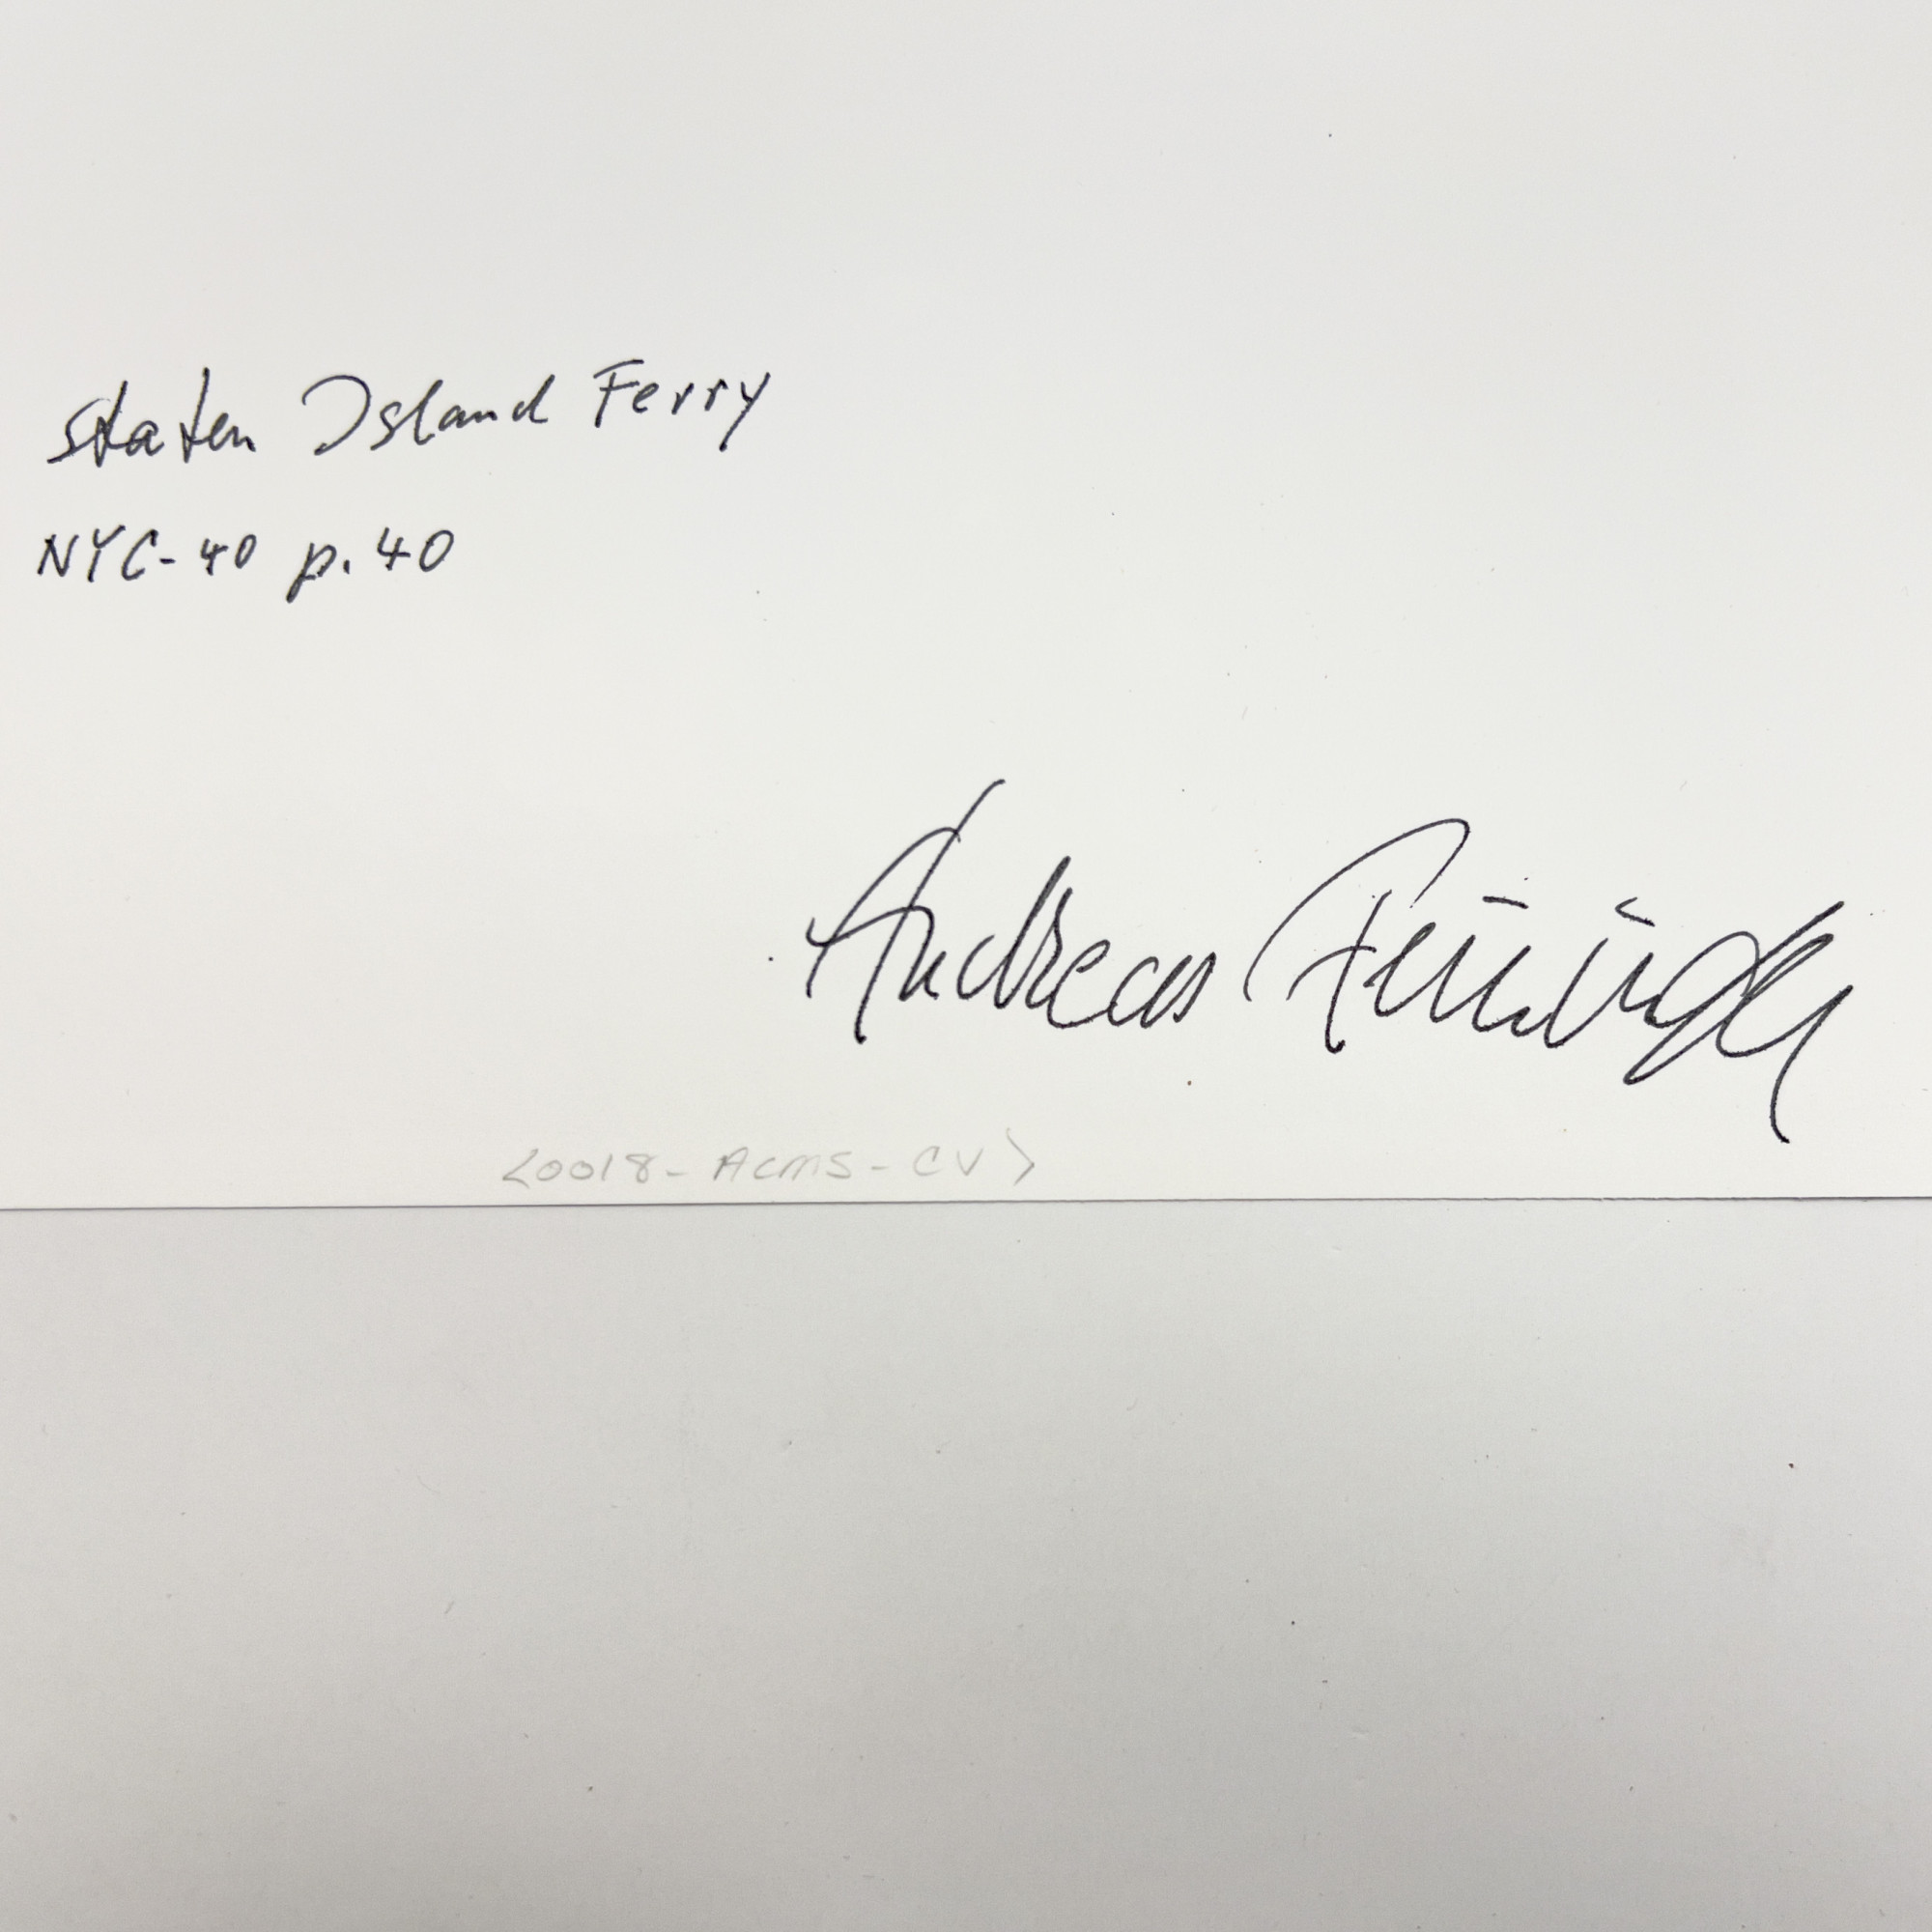 Staten Island Ferry
NYC-40 p. 40
Andreas Feininger
<0018-ACMS-CV>